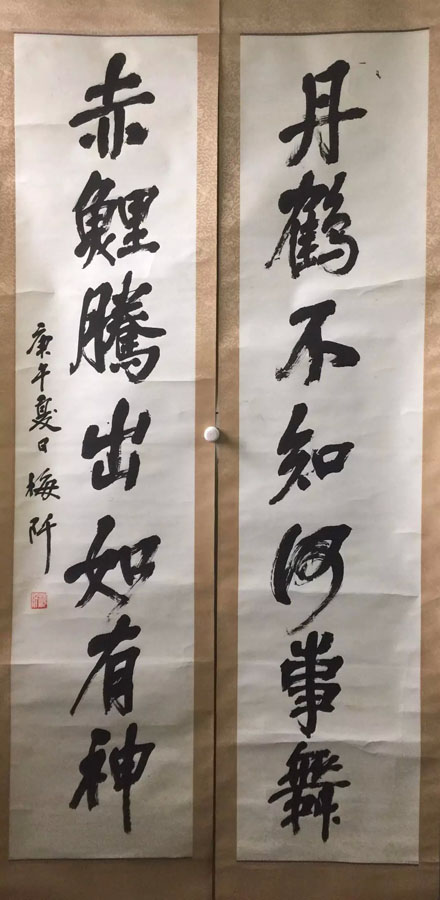 丹鶴不知何事舞
赤鯉騰出如有神
庚午夏日梅阡